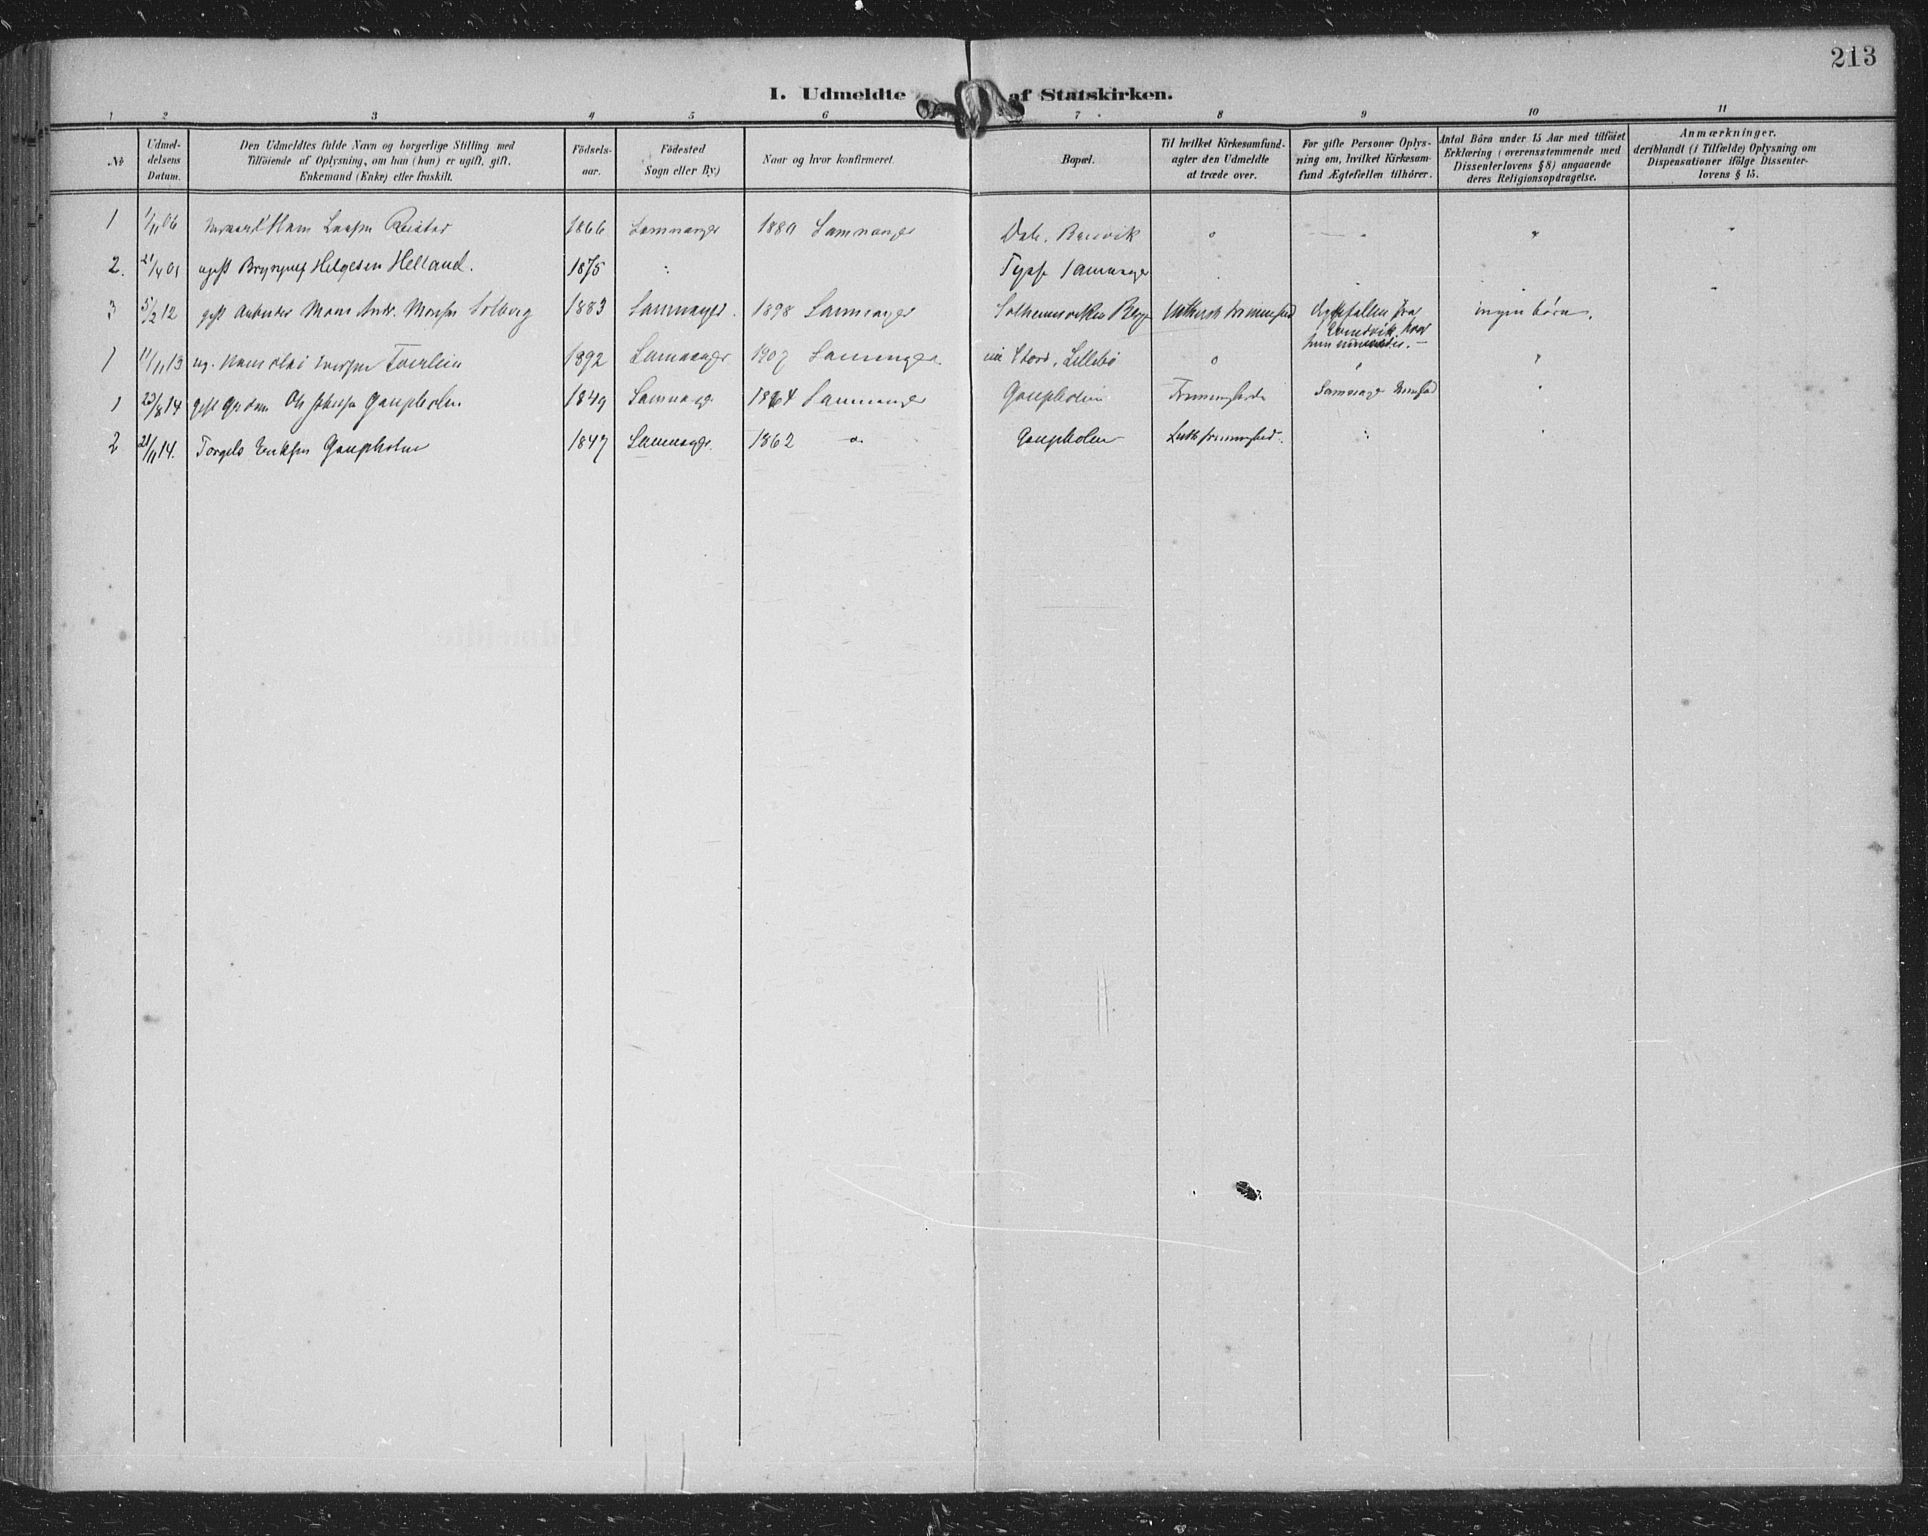 213
I. Udmeldte af Statskirken.
1 2 3 4 5 6 7 8 9 10 11
№ Udmeldelsens Datum. Den Udmeldtes fulde Navn og borgerlige Stilling med Tilföiende af Oplysning, om han (hun) er ugift, gift, Enkemand (Enke) eller fraskilt. Födselsaar. Födested Sogn eller By) Naar og hvor konfirmeret. Bopæl. Til hvilket Kirkesamfund agter den Udmeldte at træde over. For gifte Personer Oplysning om, hvilket Kirkesamfund Ægtefællen tilhörer. Antal Börn under 15 Aar med tilföiet Erklæring (overensstemmende med Dissenterlovens § 8) angaaende deres Religionsopdragelse. Anmærkninger, deriblandt (i Tilfælde) Oplysning om Dispensationer ifölge Dissenterlovens § 15.
1 1/11 06 Hans Larsen Reistad 1866 Samnanger 1880 Samnanger Dale,
2. 21/4 01 ugift Brynjulf Helgesen Helland. 1875 Samnanger
3 5/2 12 gift Arbeider Mons Andr. Monsen Solberg 1883 Samnanger. 1898 Samnanger Solheimsviken Luthersk frimenighed Ægtefællen fra ingen börn.
1 11/11 13 ug. 1892 Samnanger 1907 Samnanger Stord, Lillebö
1 23/8 14 gift Ole Gaupholm 1849 Samnanger 1864 Samnanger Gaupholm Samnanger
2 21/11 14. Torgels Gaupholm 1847 Samnanger. 1862 " Gaupholm Luth frimenighed.